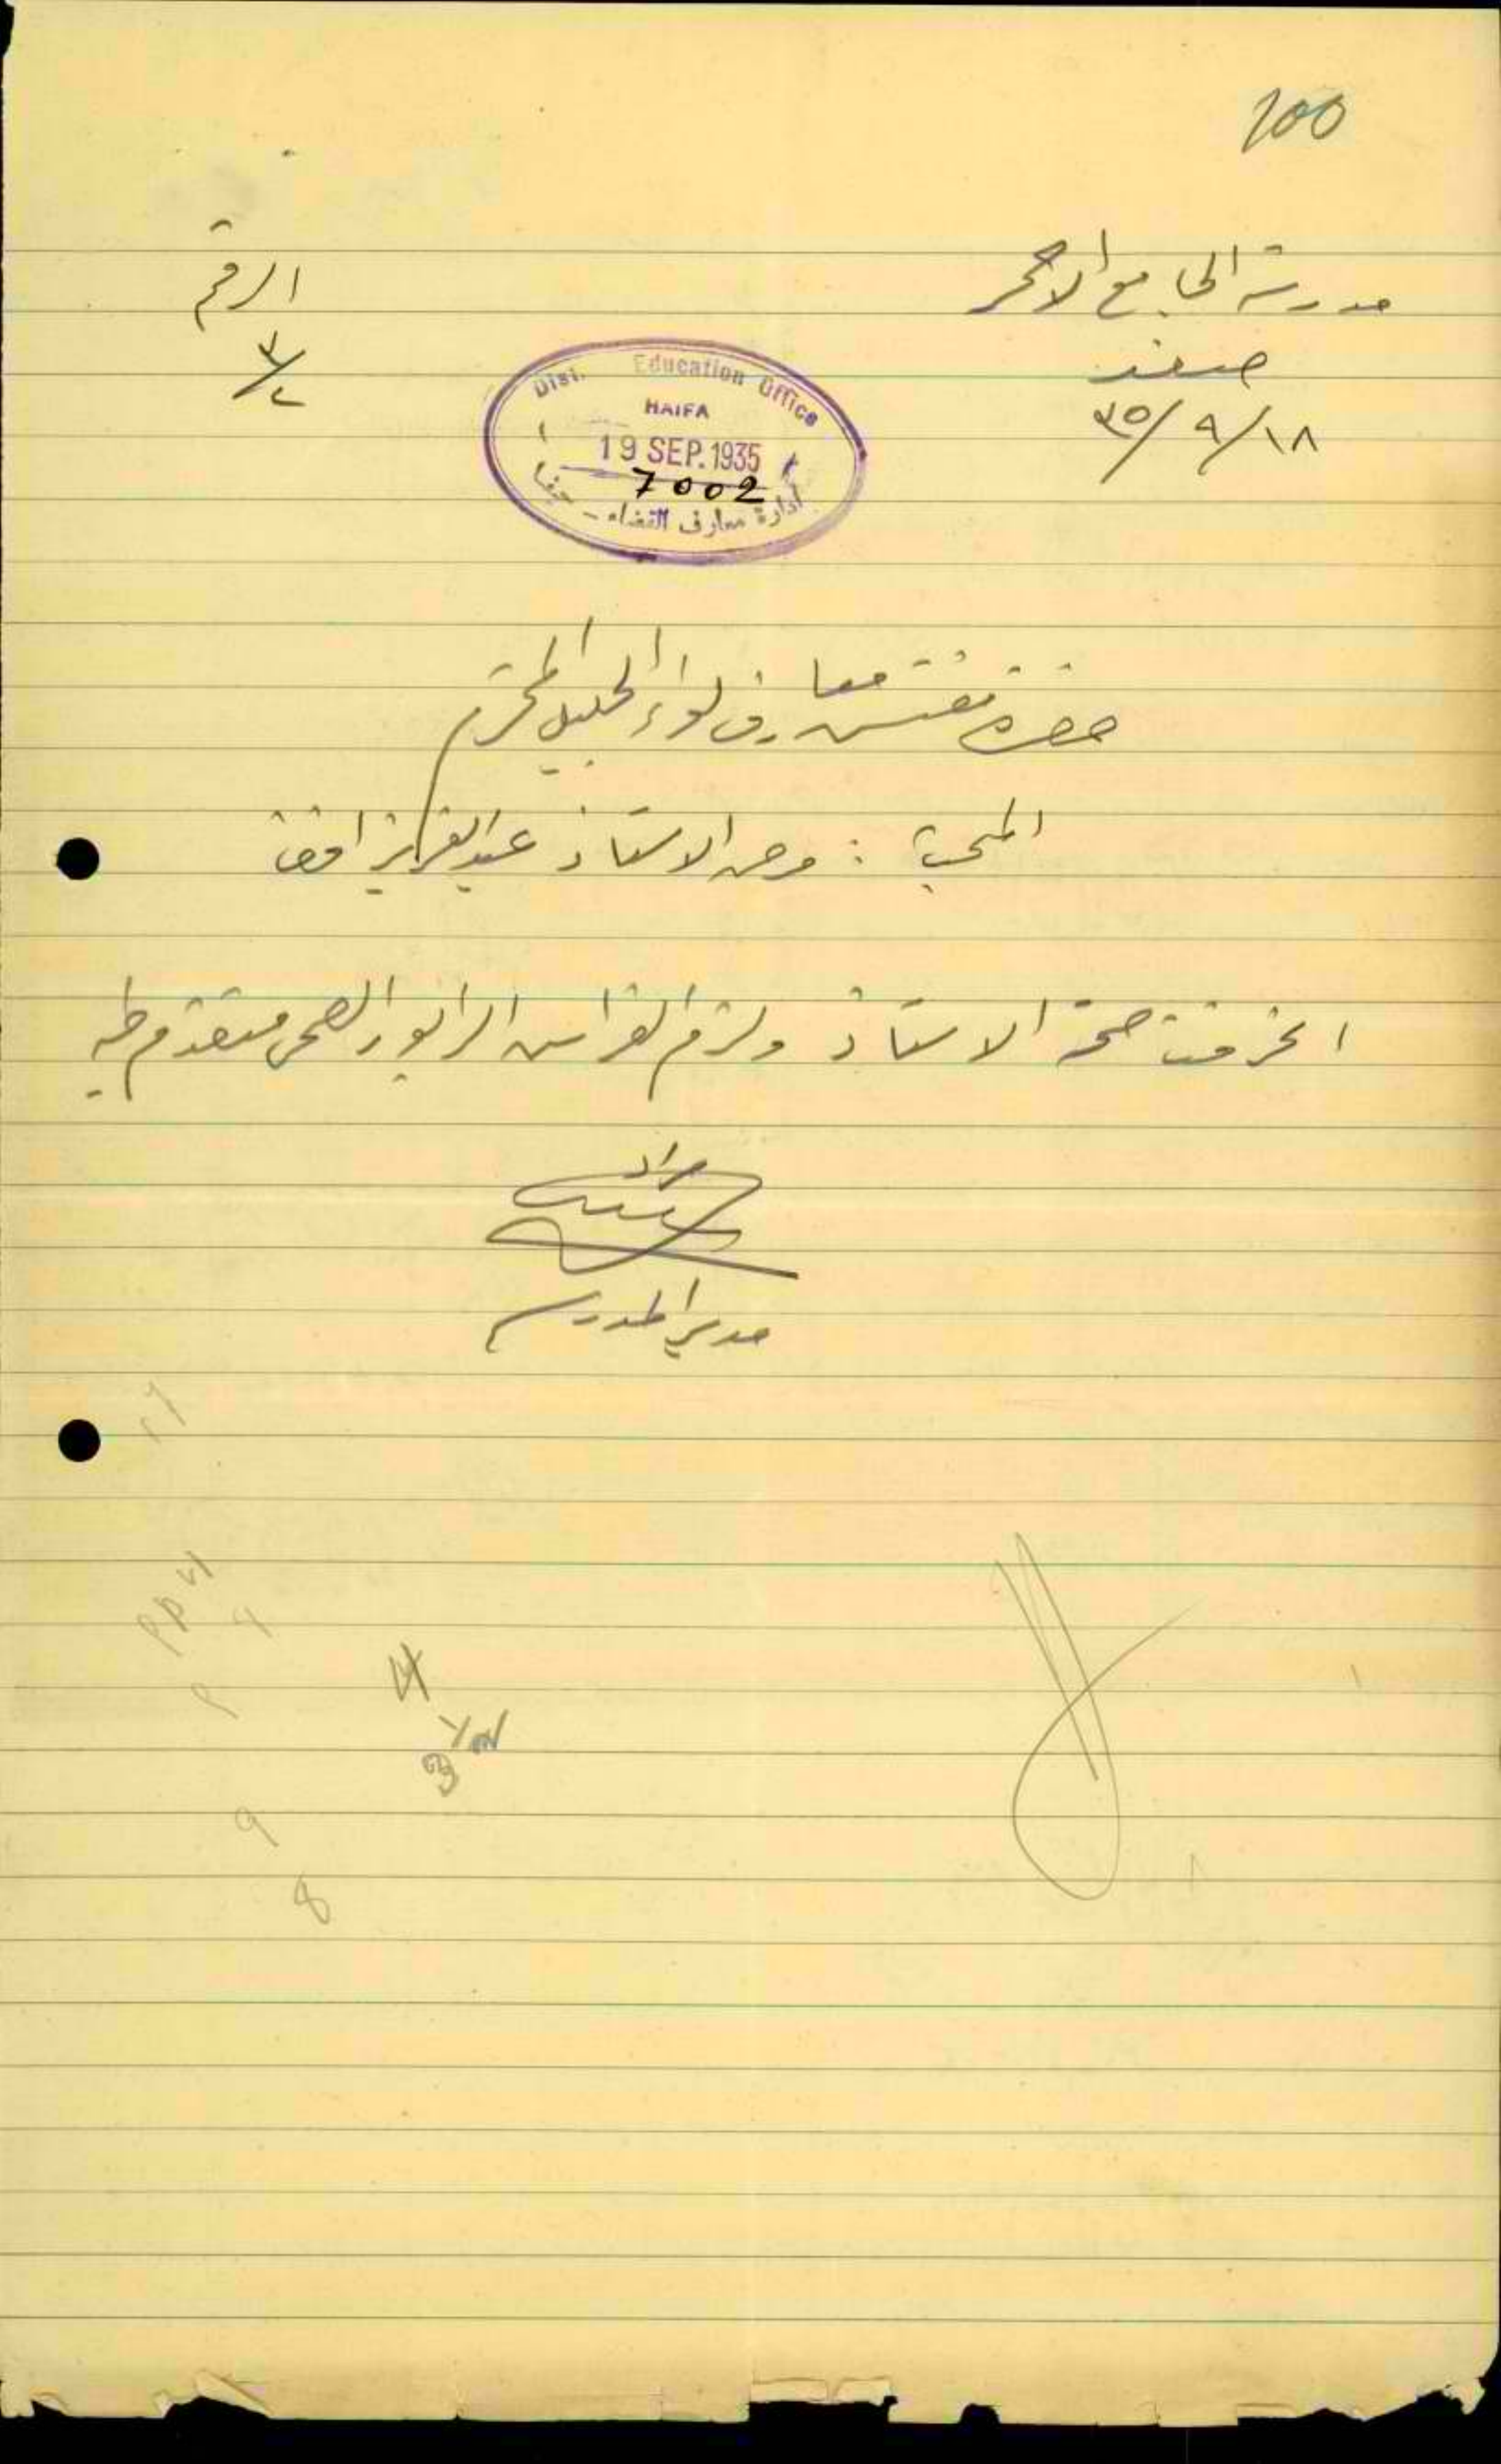 100
مدرسة الجامع الاحمر
صفد
١٨/٩/٣٥
الرقم
Dist. Education Office
HAIFA
19 SEP. 1935
7002
ادارة معارف القضاء - حيفا
حضرة مفتش معارف لواء الجليل المحترم
المبحث : مرض الاستاذ عبد العزيز افندي
انحرفت صحة الاستاذ ولزم الفراش الرابور الصحي مقدم طيه
مراد
مدير المدرسة